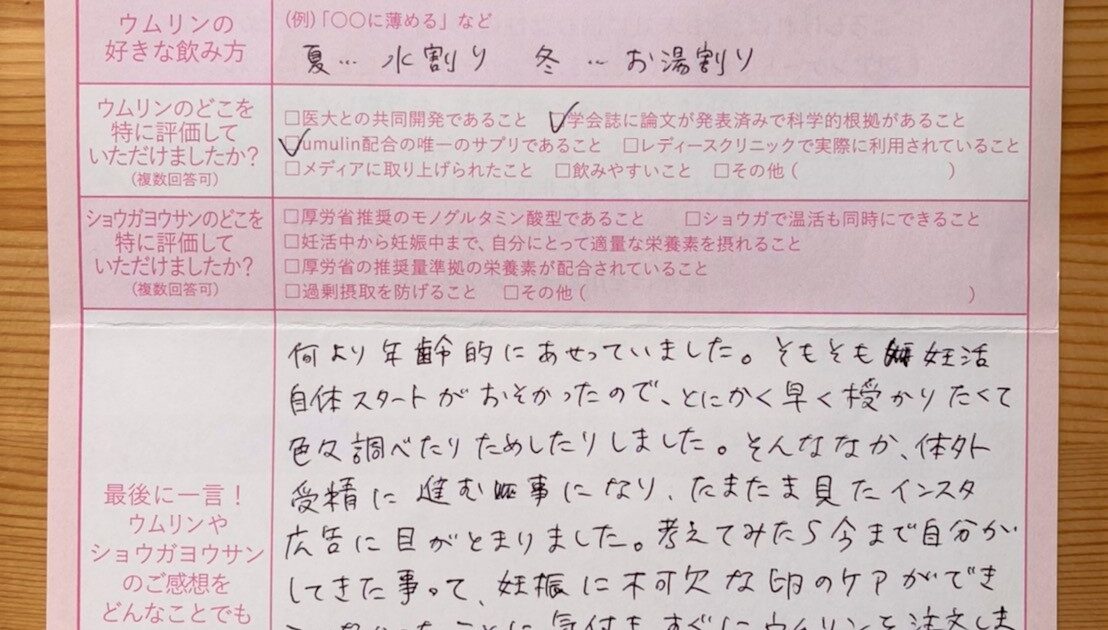 ウムリンの
好きな飲み方
(例)「〇〇に薄める」など
夏… 水割り 冬…お湯割り
ウムリンのどこを
特に評価して
いただけましたか?
(複数回答可)
□医大との共同開発であること ☑学会誌に論文が発表済みで科学的根拠があること
☑umulin配合の唯一のサプリであること □レディースクリニックで実際に利用されていること
□メディアに取り上げられたこと □飲みやすいこと □その他( )
ショウガヨウサンのどこを
特に評価して
いただけましたか?
(複数回答可)
□厚労省推奨のモノグルタミン酸型であること □ショウガで温活も同時にできること
□妊活中から妊娠中まで、自分にとって適量な栄養素を摂れること
□厚労省の推奨量準拠の栄養素が配合されていること
□過剰摂取を防げること □その他( )
最後に一言!
ウムリンや
ショウガヨウサン
のご感想を
どんなことでも
何より年齢的にあせっていました。そもそも妊活
自体スタートがおそかったので、とにかく早く授かりたくて
色々調べたりためしたりしました。そんななか、体外
受精に進む事になり、たまたま見たインスタ
広告に目がとまりました。考えてみたら今まで自分が
してきた事って、妊娠に不可欠な卵のケアができ
ていなかったことに気付き、すぐにウムリンを注文しま